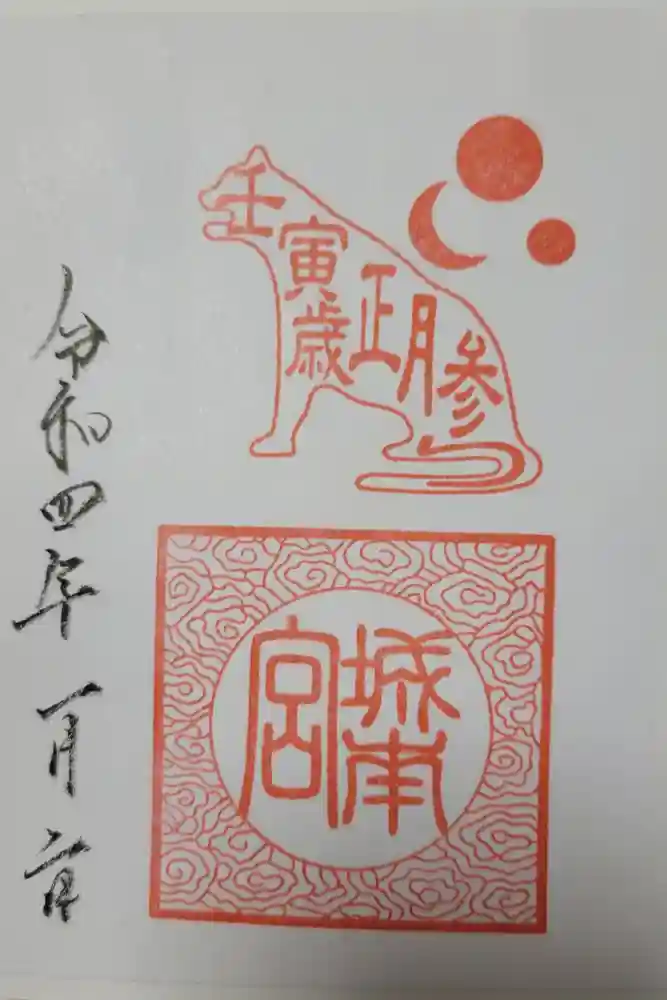 壬寅歳
正月
参
城南
宮
令和四年一月二日